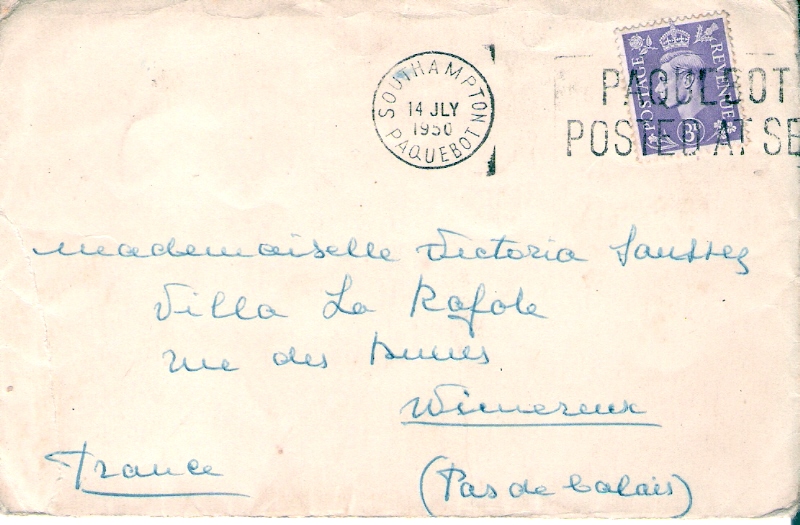 SOUTHAMPTON
14 JLY
1950
PAQUEBOT
POSTAGE REVENUE
3D
PAQUEBOT
POSTED AT SE
Mademoiselle Victoria
Villa La Rafole
rue des Dunes
Wimereux
France
(Pas de Calais)